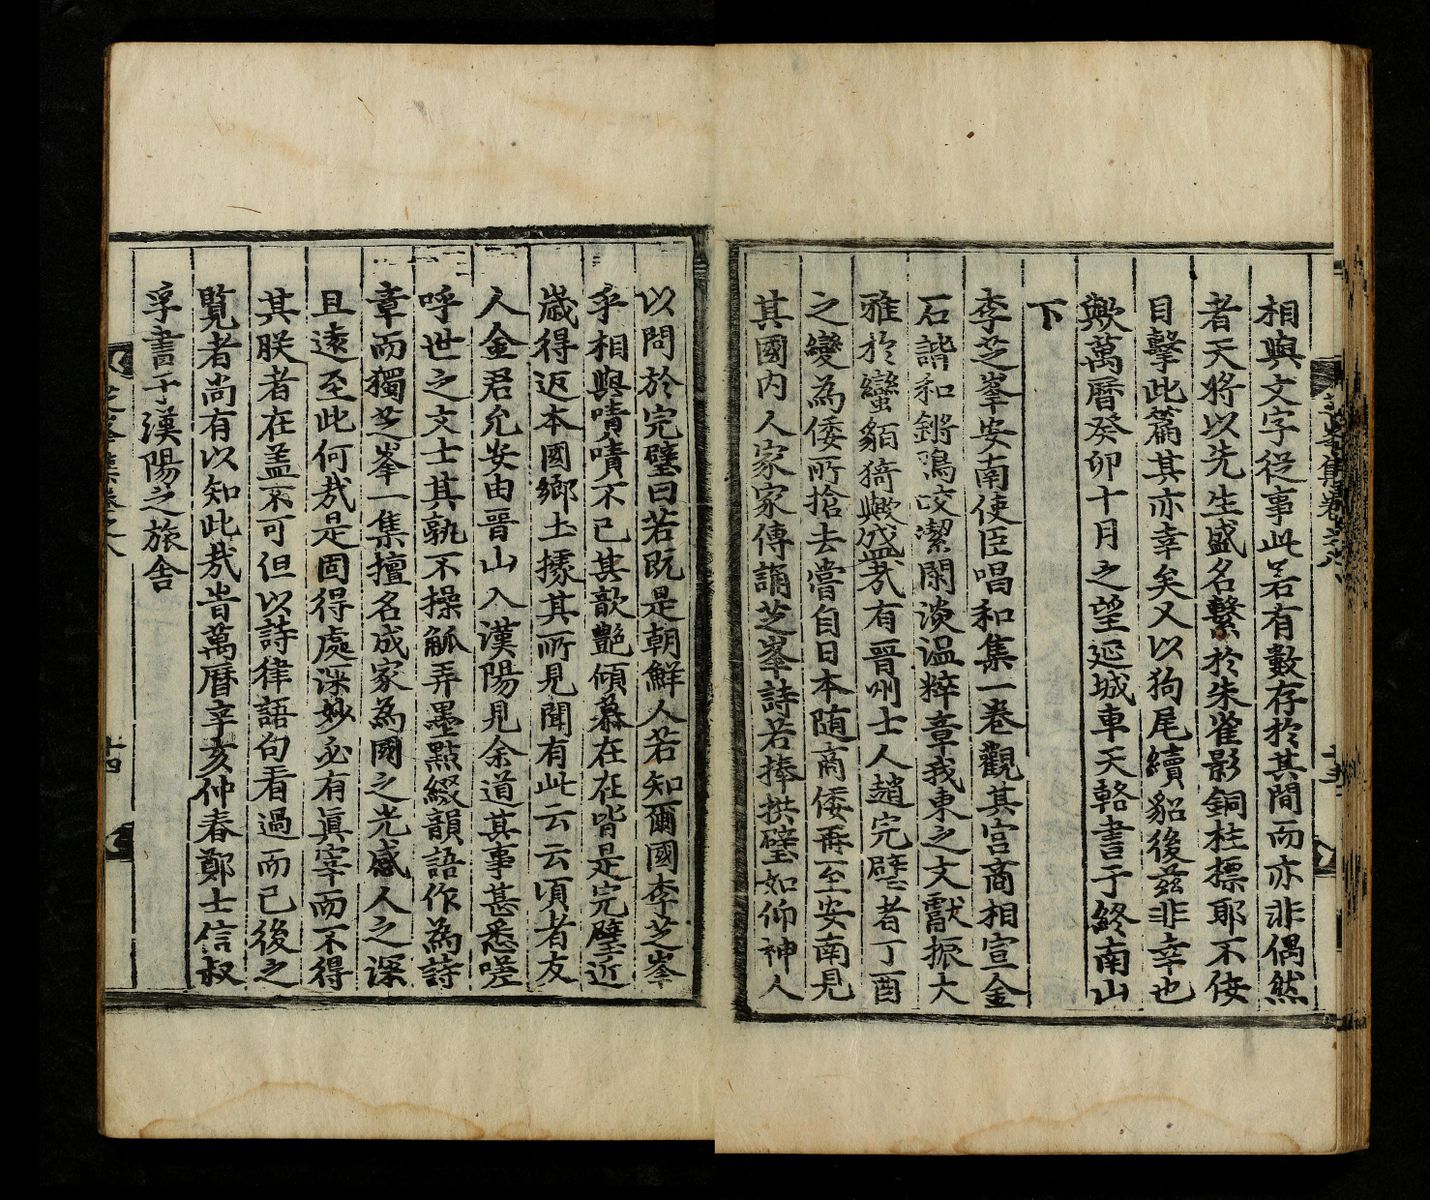 相與文字從事此若有數存於其間而亦非偶然
者天將以先生盛名繫於朱雀影銅柱摽耶不佞
目擊此篇其亦幸矣又以狗尾續貂後茲非幸也
歟萬曆癸卯十月之望延城車天輅書于終南山
下
李芝峯安南使臣唱和集一卷觀其宮商相宣金
石諧和鏘鴻咬潔閑淡温粹章我東之文獻振大
雅於蠻貊猗歟盛㦲有晉州士人趙完璧者丁酉
之變為倭所搶去嘗自日本随商倭再至安南見
其國內人家家傳誦芝峯詩若捧拱璧如仰神人
以問於完璧曰若既是朝鮮人若知爾國李芝峯
乎相與嘖嘖不已其歆艶傾慕在在皆是完璧近
歲得返本國鄉土據其所見聞有此云云頃者友
人金君允安由晋山入漢陽見余道其事甚悉嗟
呼世之文士其孰不操觚弄墨點綴韻語作為詩
章而獨芝峯一集擅名成家為國之光感人之深
且遠至此何㦲是固得處深妙必有眞宰而不得
其朕者在盖不可但以詩律語句看過而已後之
覽者尚有以知此㦲旹萬曆辛亥仲春鄭士信叔
孚書于漢陽之旅舍
芝峯集卷之八
十四